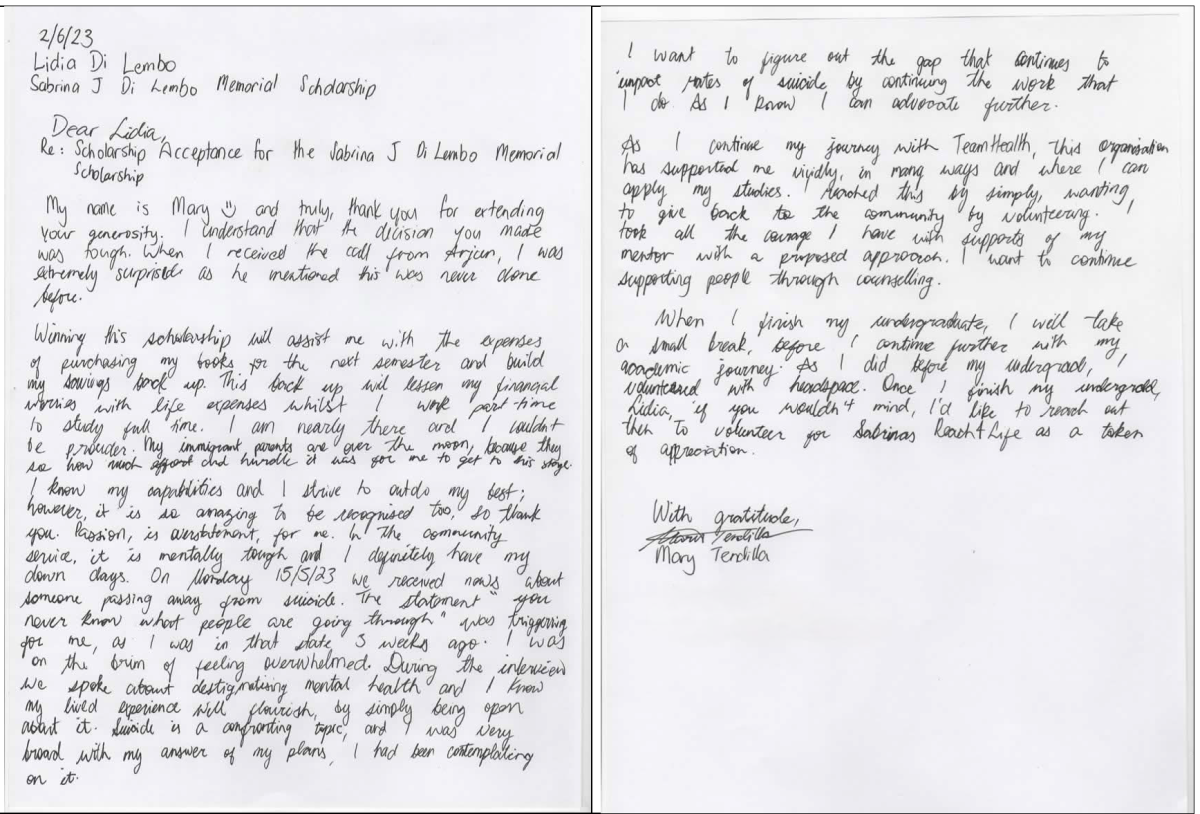 2/6/23
Lidia Di Lembo
Sabrina J Di Lembo Memorial Scholarship
Dear Lidia,
Re: Scholarship Acceptance for the Sabrina J Di Lembo Memorial
Scholarship
My name is Mary ☺ and truly, thank you for extending
your generosity. I understand that the decision you made
was tough. When I received the call from Arjun, I was
extremely surprised as he mentioned this was never done
before.
Winning this scholarship will assist me with the expenses
of purchasing my books for the next semester and build
my savings back up. This back up will lessen my financal
worries with life expenses whilst I work part-time
to study full time. I am nearly there and I couldn't
be prouder. My immigrant parents are over the moon, because they
see how much effort and hurdle it was for me to get to this stage.
I know my capabilities and I strive to outdo my best;
however, it is so amazing to be recognised too, so thank
you. Passion, is overstatement, for me. In the community
service, it is mentally tough and I definitely have my
down days. On Monday 15/5/23 we received news about
someone passing away from suicide. The statement "you
never know what people are going through" was triggering
for me, as I was in that state 3 weeks ago. I was
on the brim of feeling overwhelmed. During the interview
we spoke about destigmatising mental health and I know
my lived experience will flourish, by simply being open
about it. Suicide is a confronting topic, and I was very
broad with my answer of my plans, I had been contemplating
on it.
I want to figure out the gap that continues to
impact rates of suicide by continuing the work that
I do As I know I can advocate further.
As I continue my journey with TeamHealth, this organisation
has supported me vividly, in many ways and where I can
apply my studies. I reached this by simply, wanting
to give back to the community by volunteering. I
took all the courage I have with supports of my
mentor with a proposed approach. I want to continue
supporting people through counselling.
When I finish my undergraduate, I will take
a small break, before I continue further with my
academic journey. As I did before my undergrad, I
volunteered with headspace. Once I finish my undergrad,
Lidia, if you wouldn't mind, I'd like to reach out
then to volunteer for Sabrinas Reach4Life as a token
of appreciation.
With gratitude,
Mary Tendilla